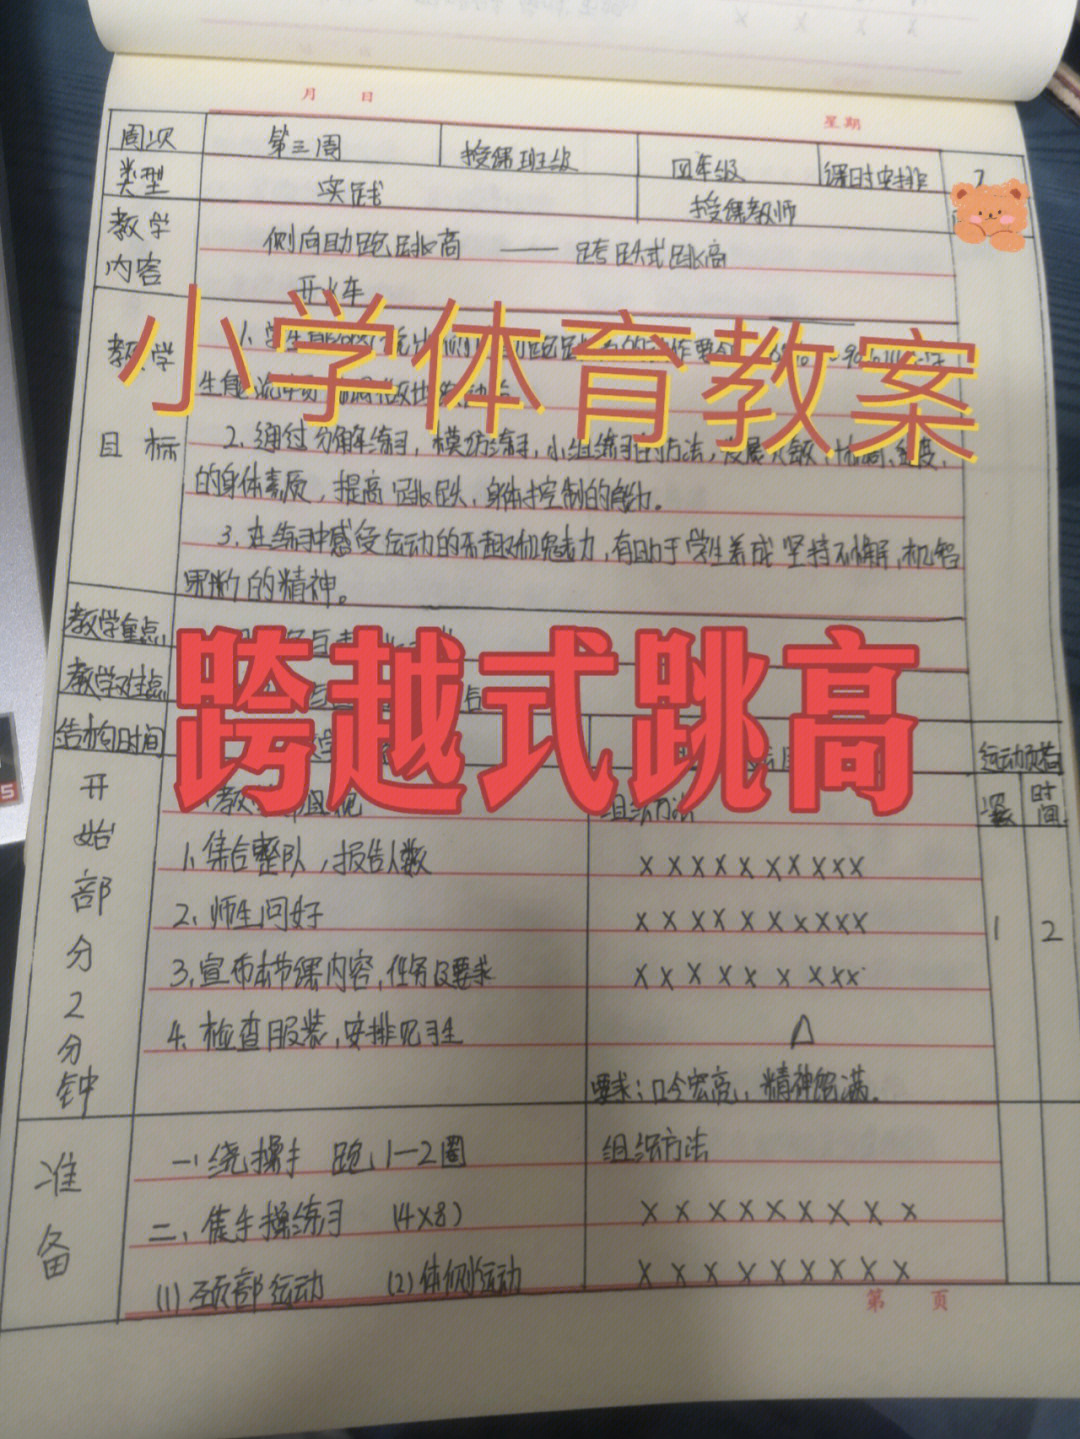 月 日
星期
周次 第三周 授课班级 四年级 课时安排
类型 实践 授课教师
教学内容 侧向助跑跳高 —— 跨跃式跳高
开火车
小学体育教案
教学目标
2. 通过分解练习，模仿练习，小组练习的方法，发展灵敏、协调、速度，
的身体素质，提高跳跃，身体控制的能力。
3. 在练习中感受运动的乐趣和魅力，有助于学生养成坚持不懈，机智
果断的精神。
教学重点
教学难点
跨越式跳高
结构时间 运动负荷
组织方法 次数 时间
开始部分2分钟
1、集合整队，报告人数 X X X X X X X X X X
2、师生问好 X X X X X X X X X X 1 2
3、宣布本节课内容，任务及要求 X X X X X X X X X
4、检查服装，安排见习生 Δ
要求：口令宏亮，精神饱满。
准备
一、绕操手 跑1—2圈 组织方法
二、徒手操练习 (4X8) X X X X X X X X X
(1) 颈部运动 (2) 体侧运动 X X X X X X X X X
第 页